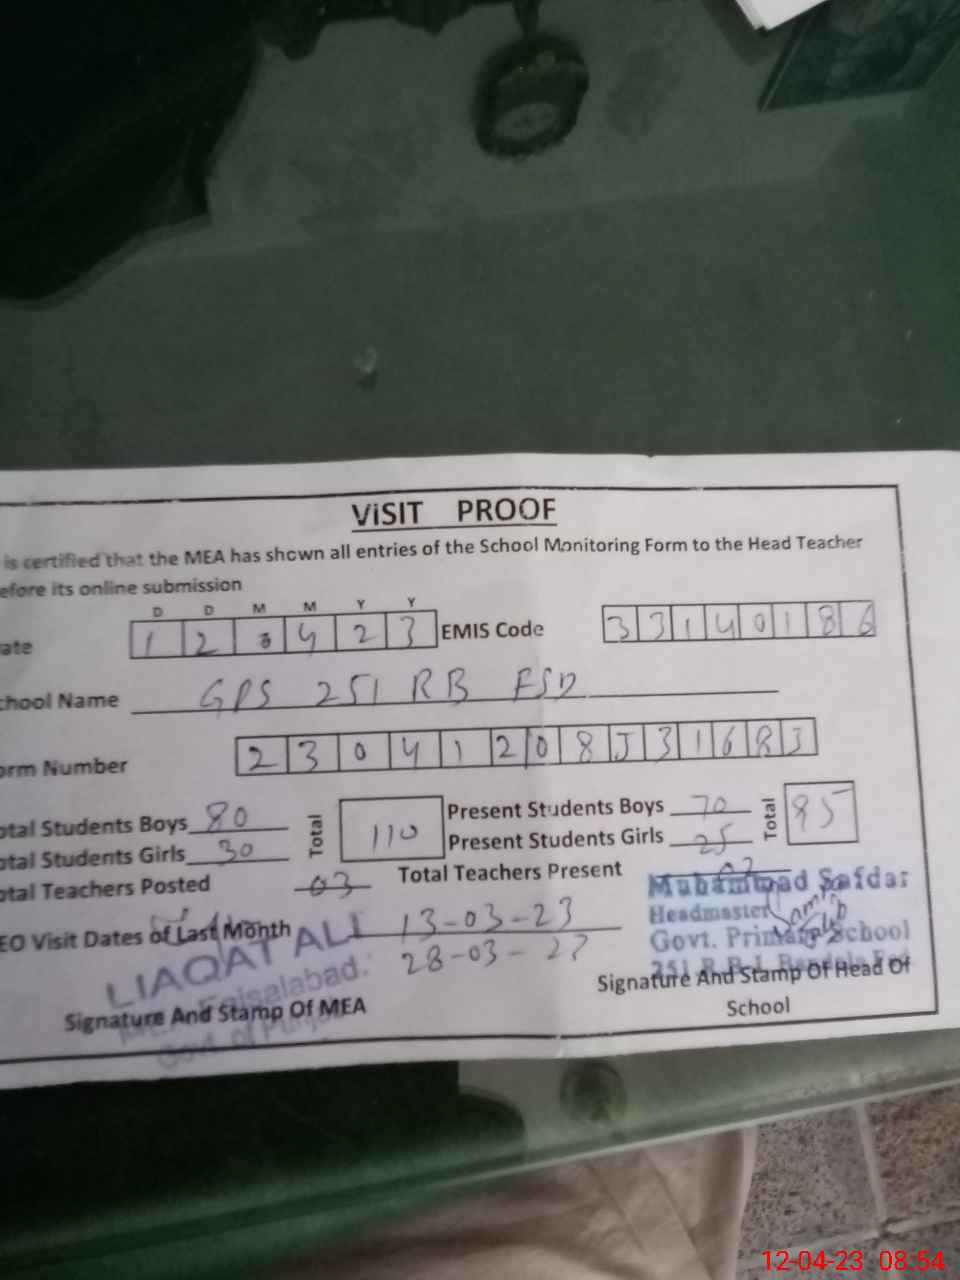 ViSIT PROOF
is certified that the MEA has shown all entries of the School Monitoring Form to the Head Teacher
efore its online submission
D D M M Y Y
ate 1 2 0 4 2 3 EMIS Code 3 3 1 4 0 1 8 6
chool Name GPS 251 RB FSD
orm Number 2 3 0 4 1 2 0 8 J 3 1 6 8 3
otal Students Boys 80 Total 110 Present Students Boys 70 Total 95
otal Students Girls 30 Present Students Girls 25
otal Teachers Posted 03 Total Teachers Present
Muhammad Safdar
Headmaster
Govt. Primary School
EO Visit Dates of Last Month 13-03-23
28-03-23
LIAQAT ALI
Faisalabad.
Signature And Stamp Of MEA
Signature And Stamp Of Head Of
School
12-04-23 08:54